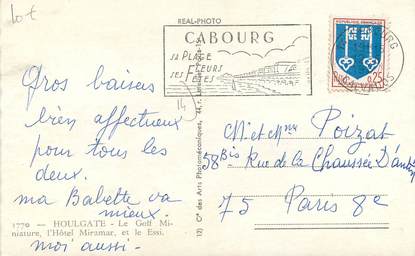 lot
REAL-PHOTO
CABOURG
SA PLAGE
SES FLEURS
SES FÊTES
REPUBLIQUE FRANÇAISE
0,25
CALVADOS
14
Gros baisers
bien affectueux
pour tous les
deux.
ma Babette va
mieux.
moi aussi -
1770 — HOULGATE - Le Golf Mi-
niature, l'Hôtel Miramar, et le Essi.
Cie des Arts Photomécaniques, 44, r.
M. et Mme Poizat
58 Bis Rue de la Chaussée d'Antin
75 Paris 8e